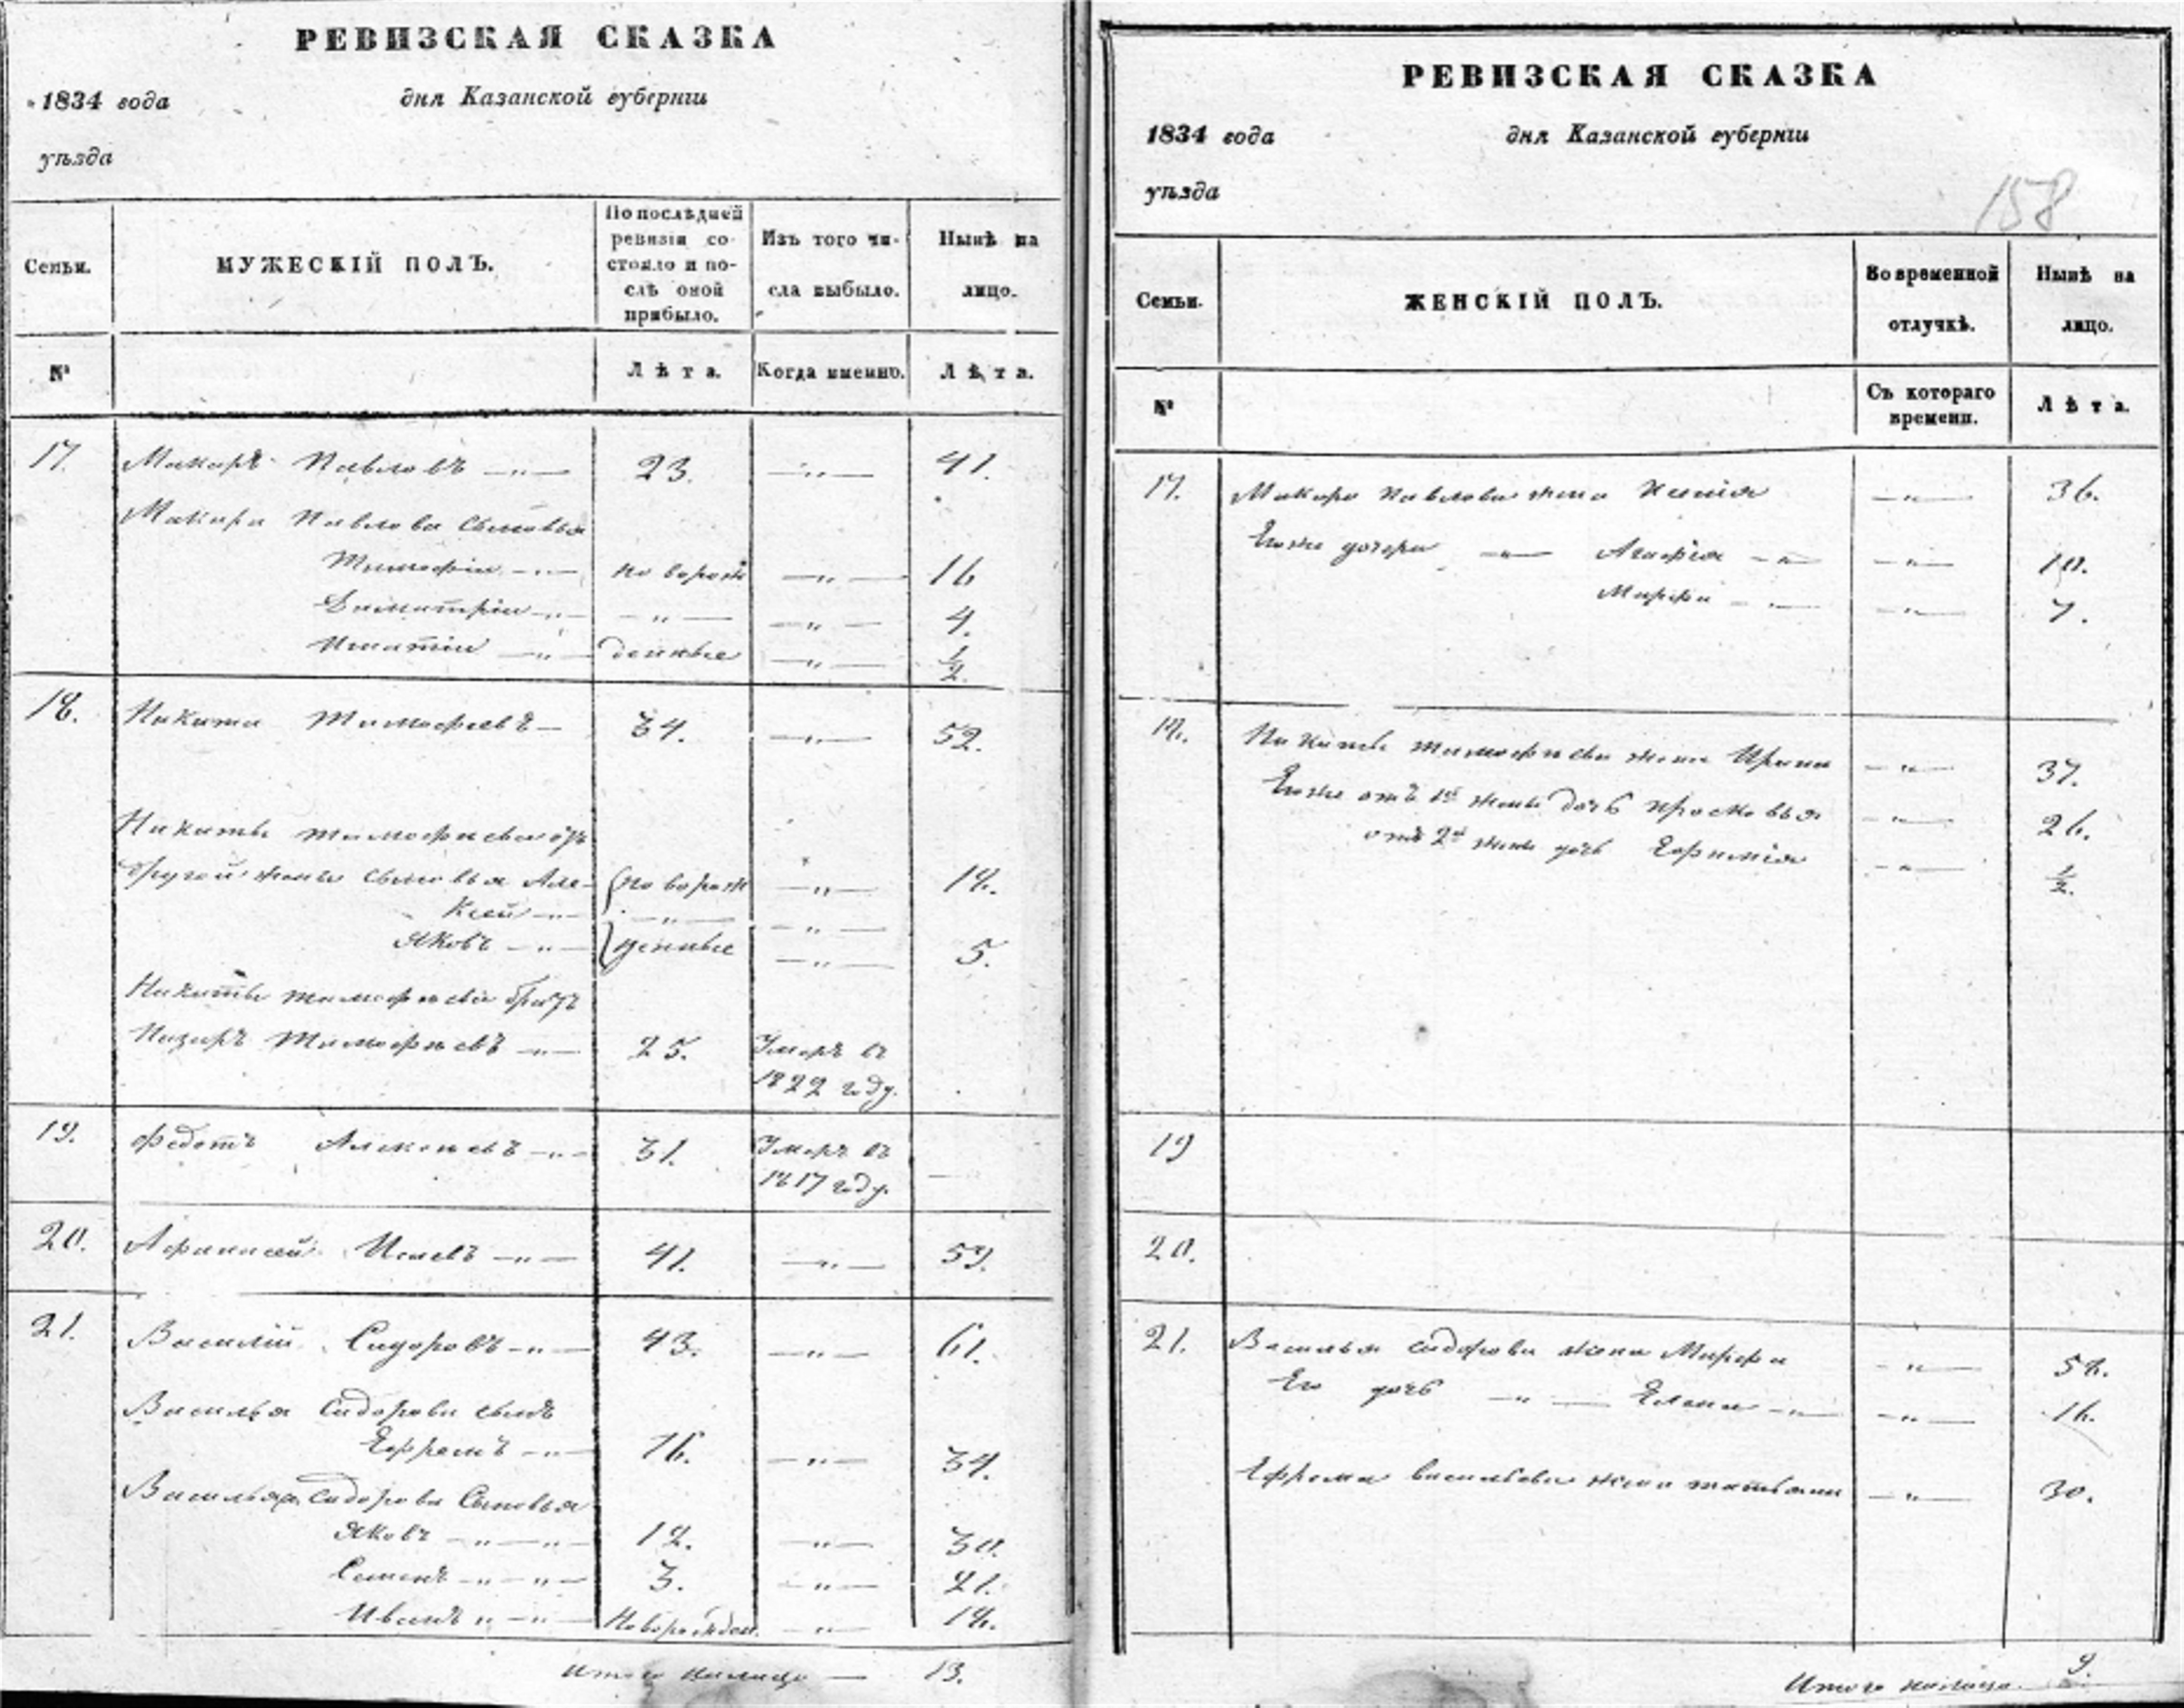 РЕВИЗСКАЯ СКАЗКА
1834 года дня Казанской губернiи
уѣзда
Семьи. МУЖЕСКIЙ ПОЛЪ. По послѣдней ревизiи состояло и послѣ оной прибыло. Изъ того числа выбыло. Нынѣ на лицо.
№ Лѣта. Когда именно. Лѣта.
17. Макаръ Павловъ —„— 23. —„— 41.
Макара Павлова сыновья
Тимофiи —„— новорож —„— 16
Димитрiи —„— —„— —„— 4.
Игнатiи —„— денные —„— ½.
18. Никита Тимофеевъ — 34. —„— 52.
Никиты Тимофиева отъ
другой жены сыновья Але- новорож —„— 18.
ксей —„— —„— —„—
Яковъ —„— денные —„— 5.
Никиты Тимофиева братъ
Назаръ Тимофиевъ —„— 25. Умеръ въ
1822 году.
19. Федотъ Алексиевъ —„— 31. Умеръ въ —
1817 году.
20. Афанасей Исаевъ —„— 41. —„— 59.
21. Василiй Сидоровъ —„— 43. —„— 61.
Василья Сидорова сынъ
Ефремъ —„— 16. —„— 34.
Василья Сидорова сыновья
Яковъ —„— —„— 12. —„— 30.
Семенъ —„— —„— 3. —„— 21.
Иванъ „ —„— Новорожден. —„— 18.
Итого налицо — 13.
РЕВИЗСКАЯ СКАЗКА
1834 года дня Казанской губернiи
уѣзда
158
Семьи. ЖЕНСКIЙ ПОЛЪ. Во временной отлучкѣ. Нынѣ на лицо.
№ Съ котораго времени. Лѣта.
17. Макара Павлова жена Ксенiя —„— 36.
Егоже дочери —„— Агафiя —„— —„— 10.
Марфа —„— —„— 7.
18. Никиты Тимофиева жена Ирина —„— 37.
Егоже отъ 1й жены дочь Просковья —„— 26.
отъ 2й жены дочь Ефимiя —„— ½.
19
20.
21. Василья Сидорова жена Марфа —„— 58.
Его дочь —„— Елена —„— —„— 16.
Ефрема Васильева жена Татьяна —„— 30.
Итого налицо 9.